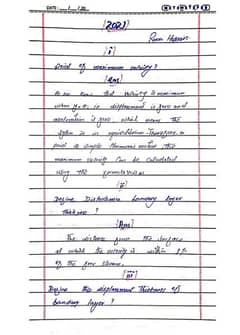 DATE: __/__/20__
(2021)
(i)
Point of maximum velocity?
(Ans)
As we know that velocity is maximum
when y=0 is displacement is zero and
acceleration is zero, which means the
system is in equilibrium Therefore, a
point a simple Harmonic motion the
maximum velocity can be calculated
using the formula
(ii)
Define Disturbance boundary layer
thickness?
(Ans)
The distance from the surface
at which the velocity is within 1%
of the free stream.
(iii)
Define the displacement thickness of
boundary layer?